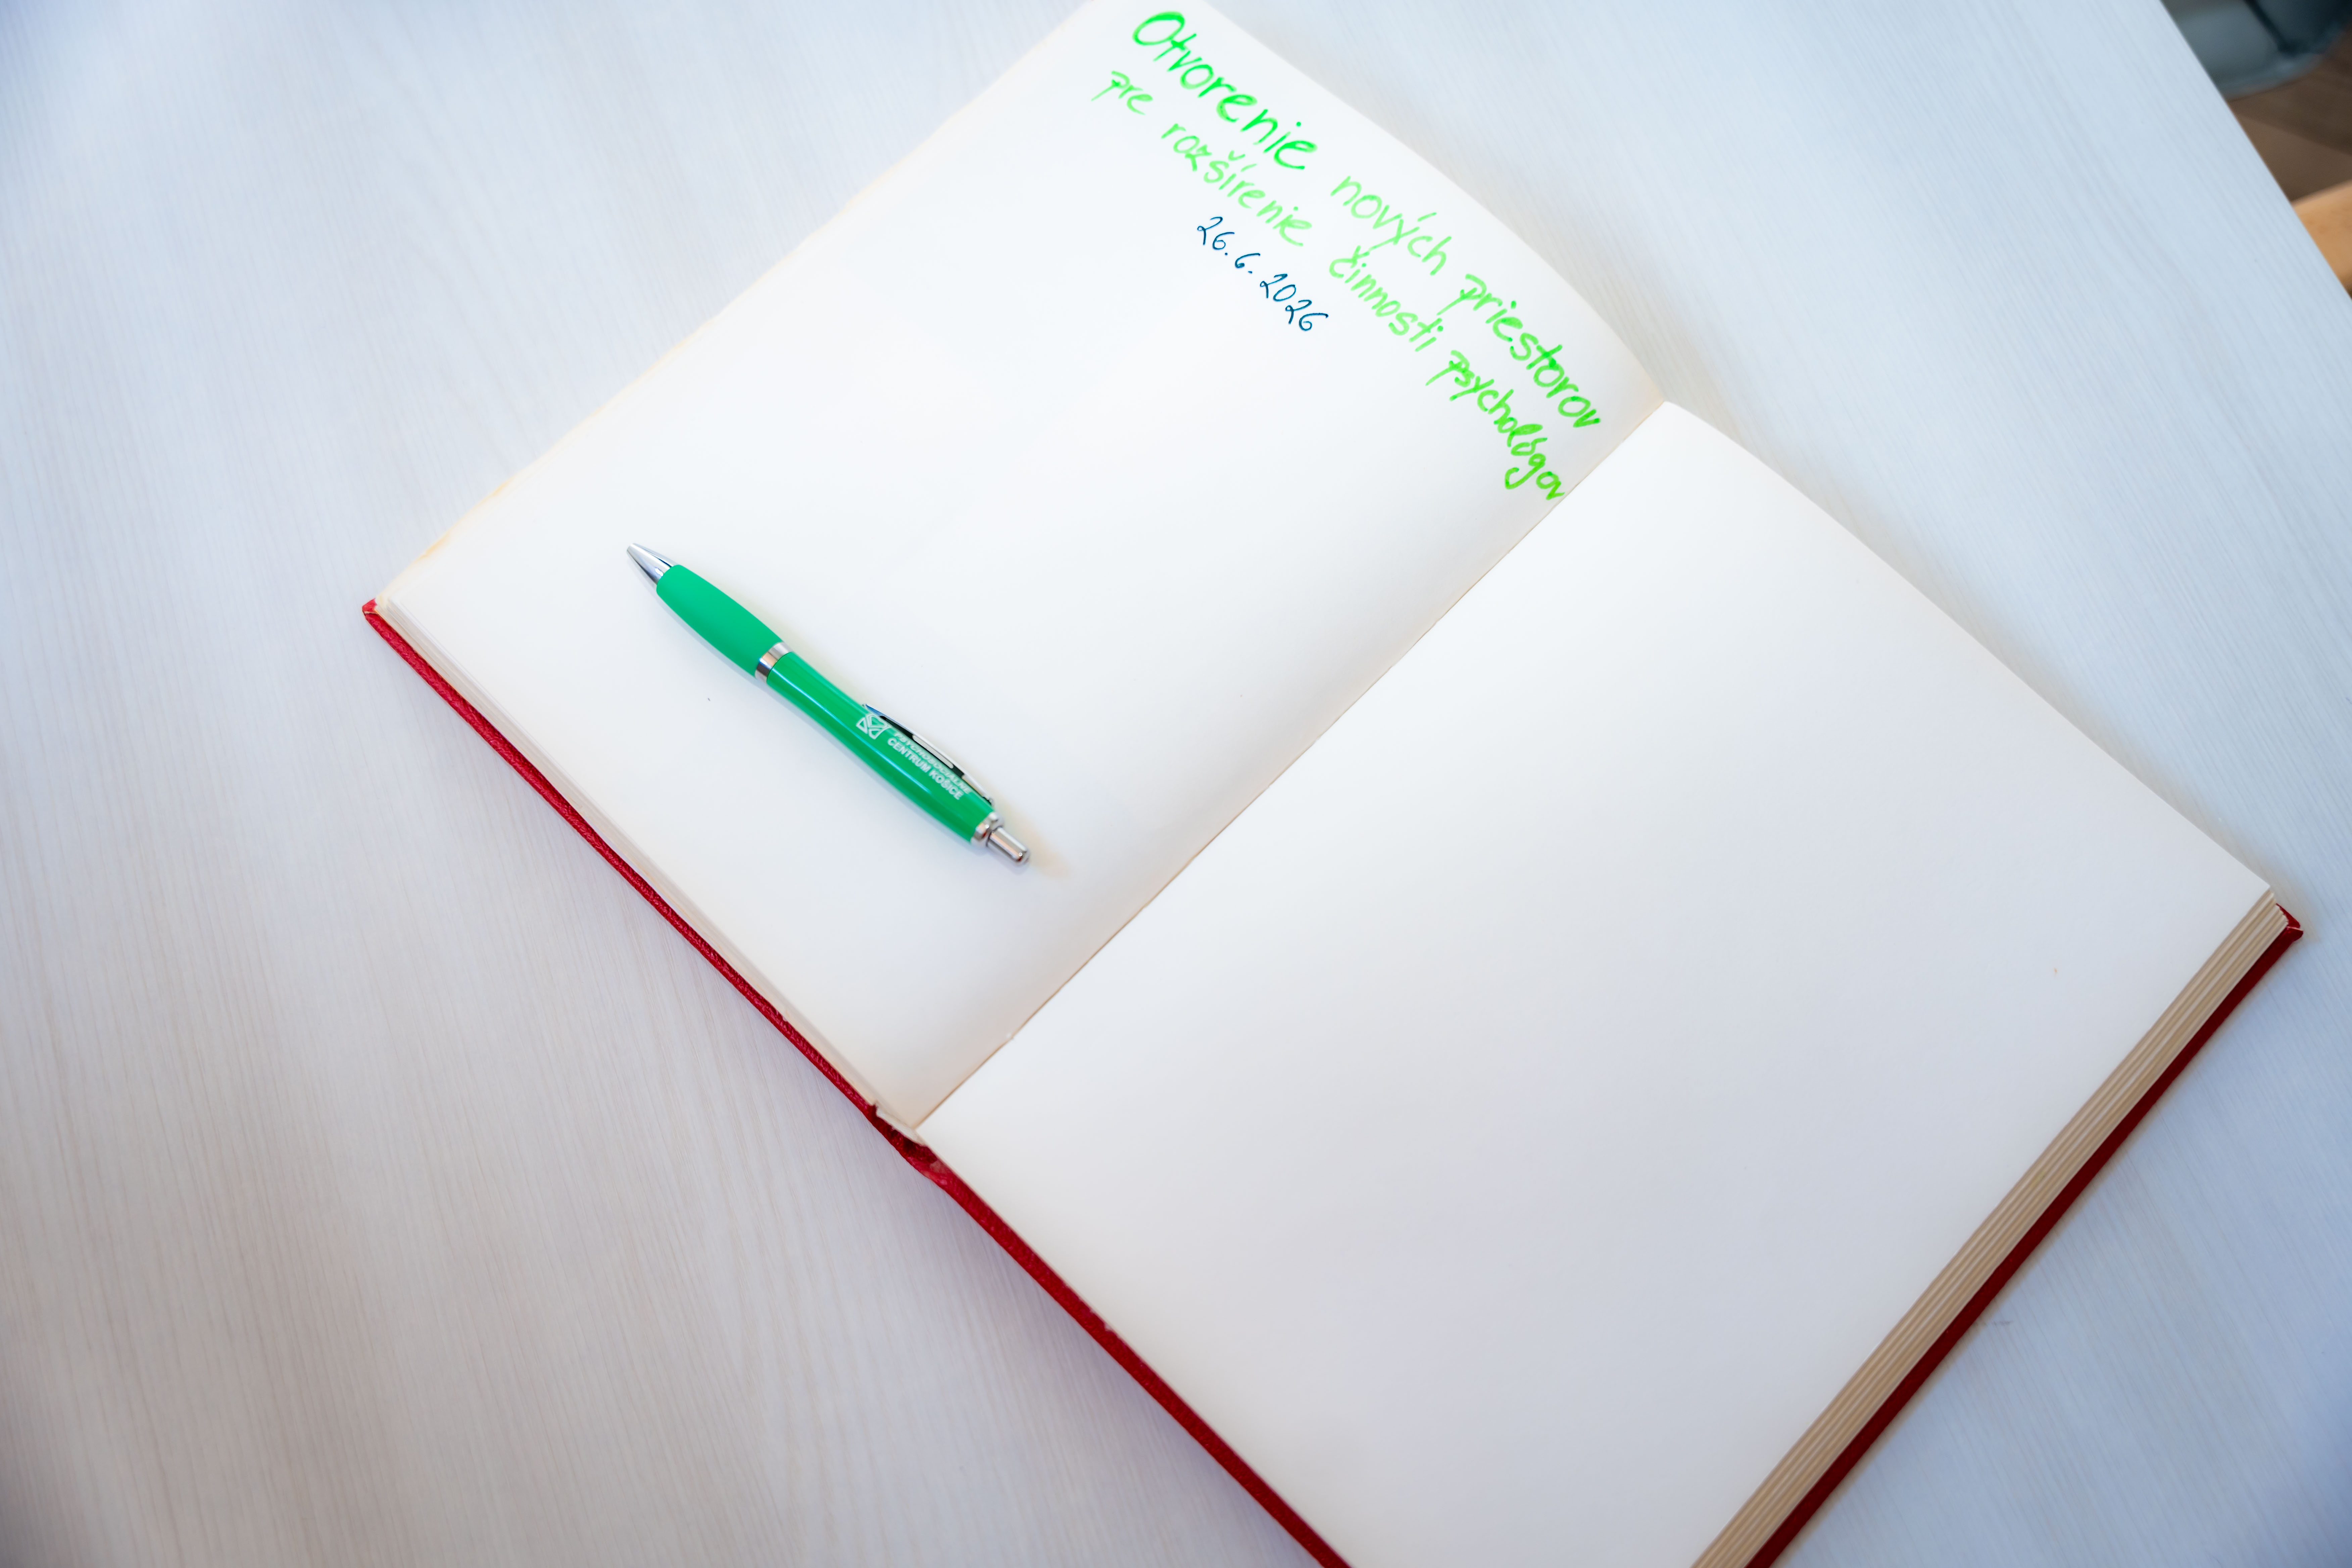 Otvorenie nových priestorov
pre rozšírenie činnosti psychológov
26.6.2026
PSYCHOSOCIÁLNE
CENTRUM KOŠICE